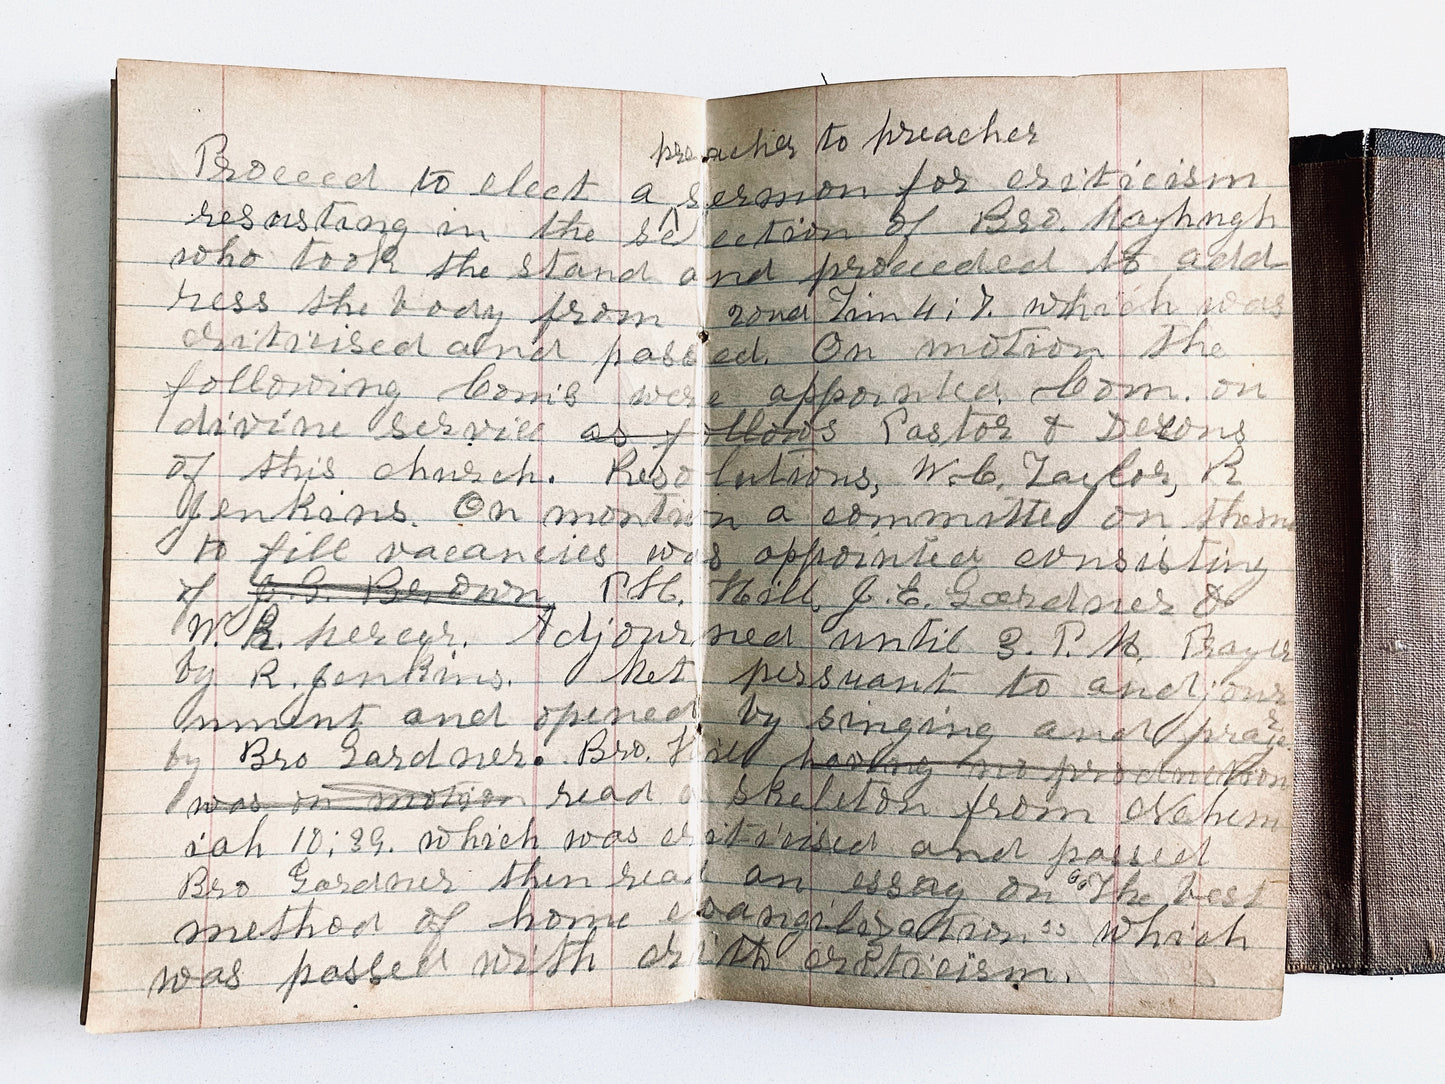 preacher to preacher
Proceed to elect a sermon for criticism
resusting in the selection of Bro. Mayhugh
who took the stand and proceeded to add
ress the body from 2ond Tim 4:7. which was
critisised and passed. On motion the
following Com's were appointed. Com. on
divine service as follows Pastor & Decons
of this church. Resolutions, W.C. Taylor, R
Jenkins. On montion a committe on theme
to fill vacancies was appointed consisting
of J.G. Brown, T.H. Hill, J.E. Gardner &
W.R. Adjourned until 3. P. M. Prayer
by R. Jenkins. Met persuant to andjour
nment and opened by singing and prayer
by Bro Gardner. Bro. Hill having no production
was on motion read a skeleton from Nehem
iah 10:39. which was critisised and passed
Bro Gardner then read an essay on "The best
method of home evangilization" which
was passed with criticism.